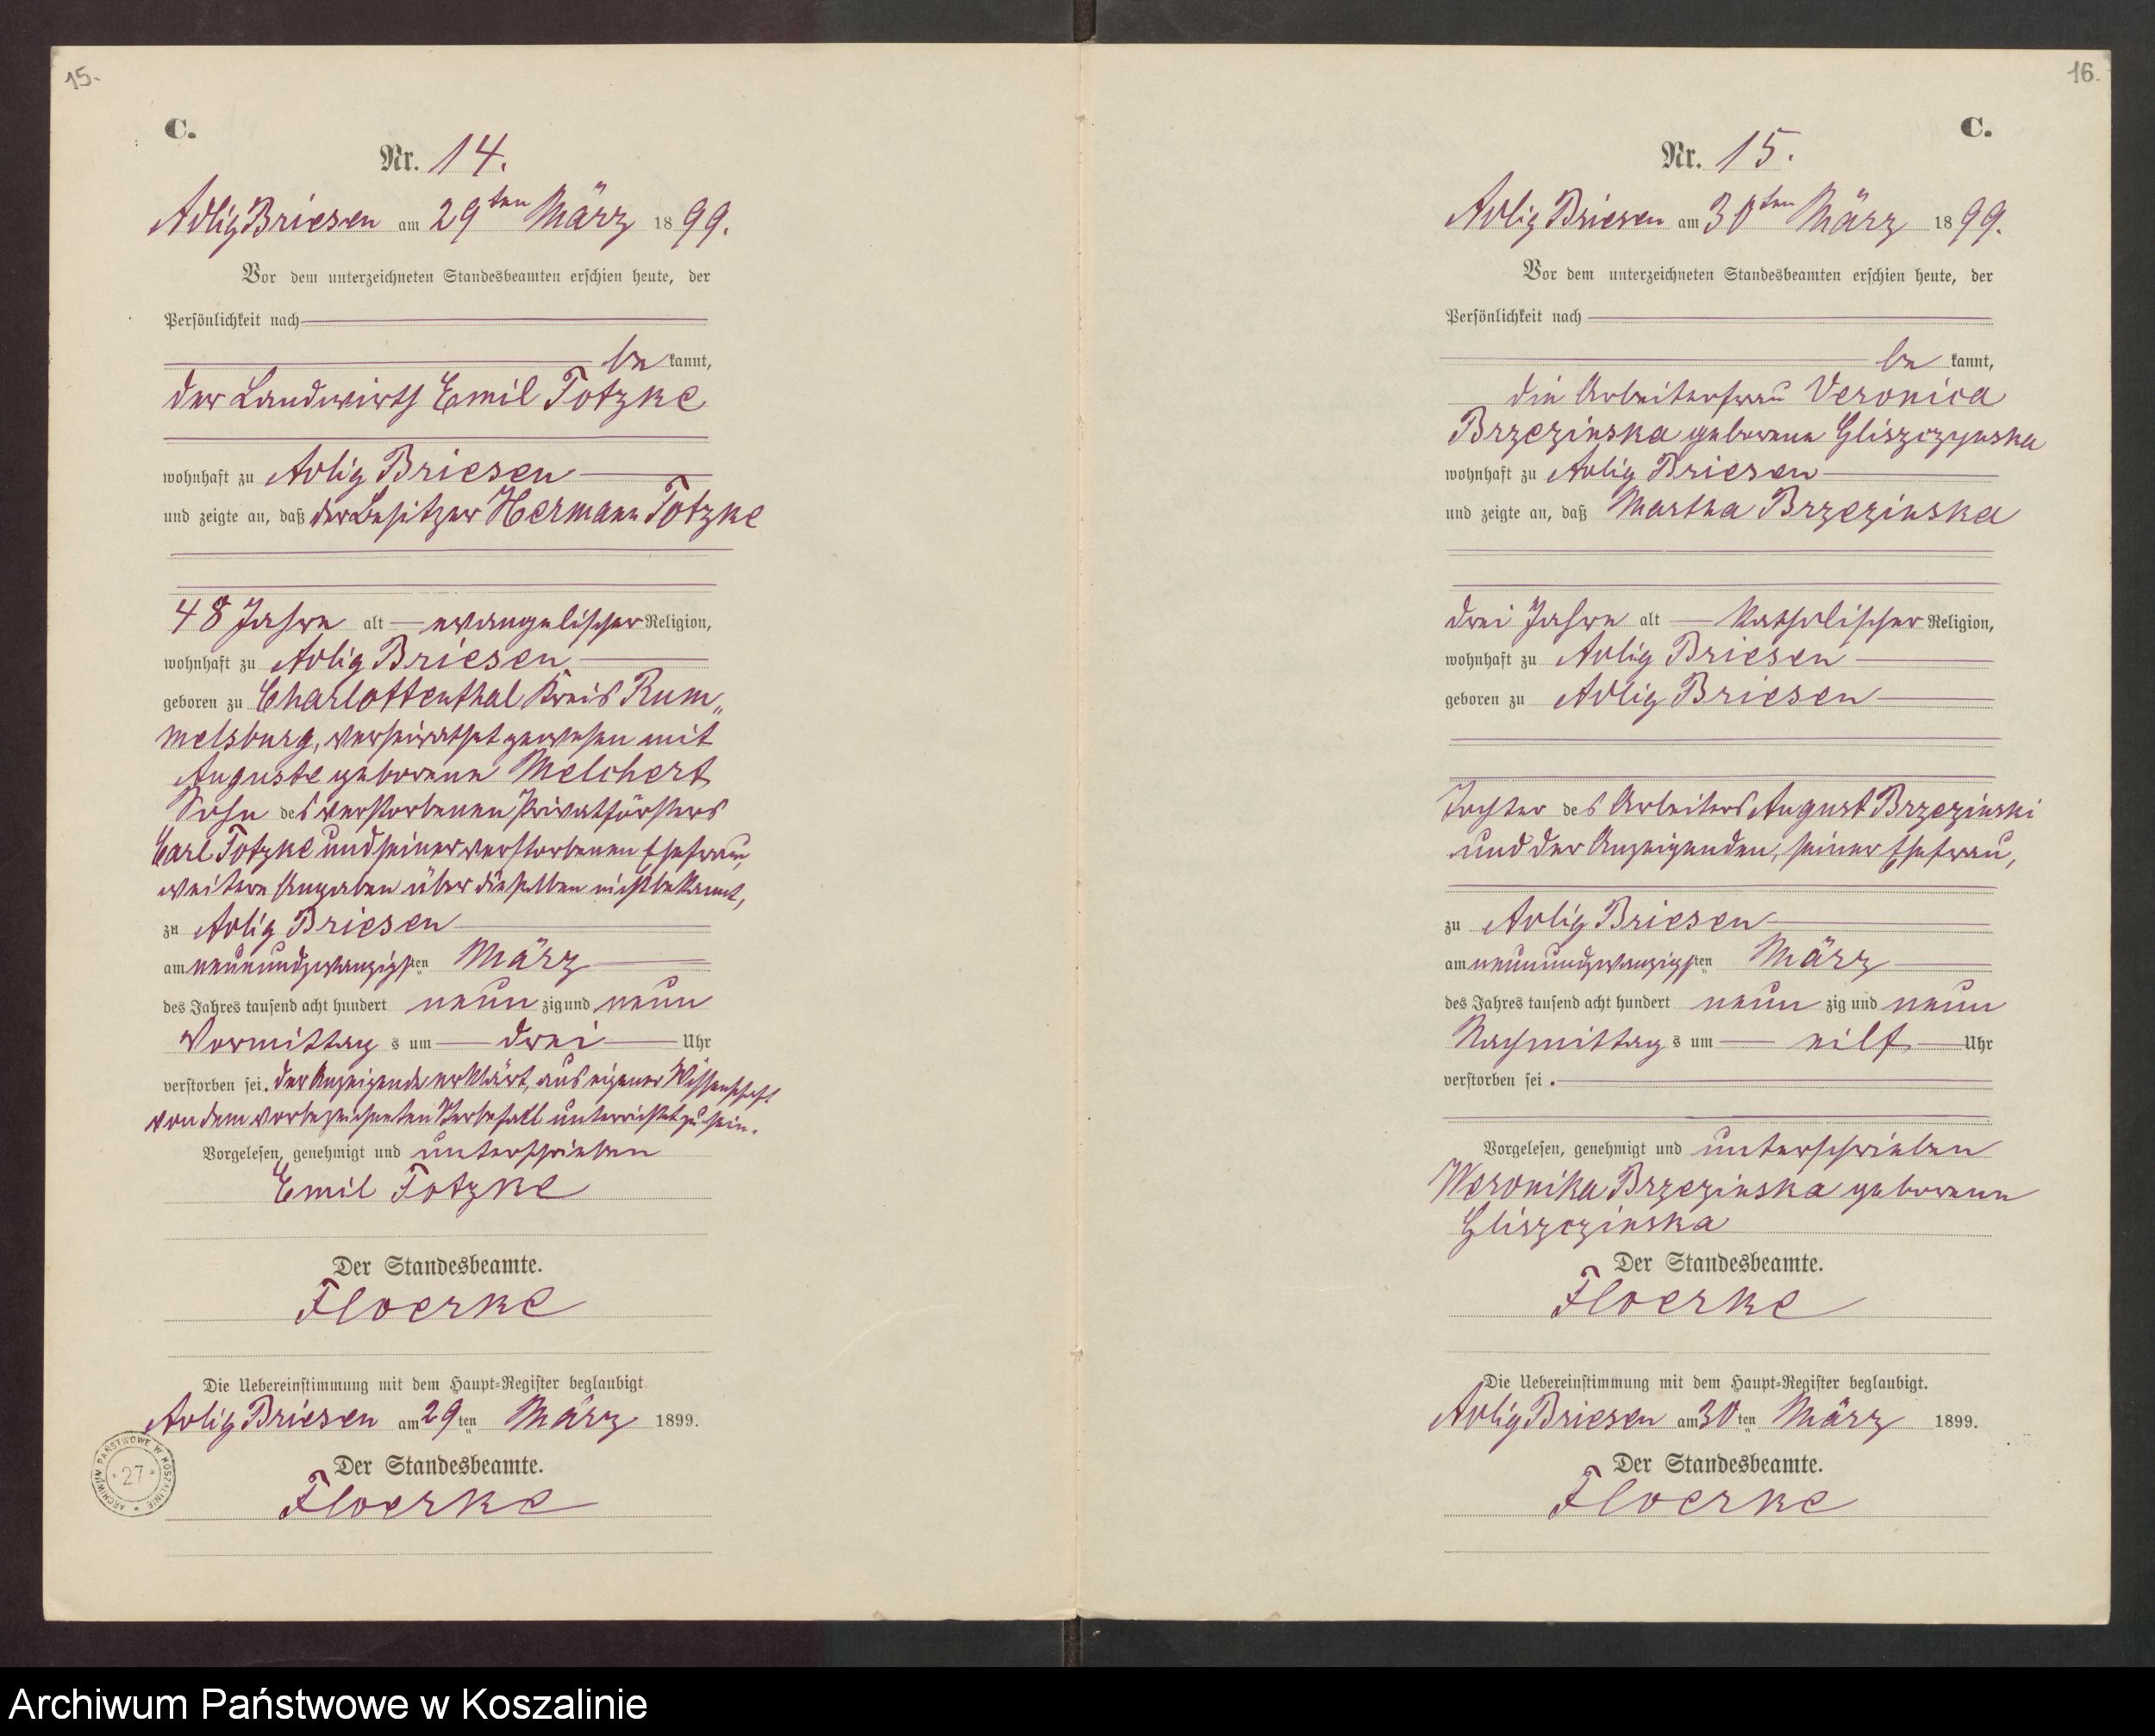 15.
C.
Nr. 14.
Adlig Briesen am 29ten März 1899.
Vor dem unterzeichneten Standesbeamten erschien heute, der
Persönlichkeit nach
bekannt,
der Landwirth Emil Totzke
wohnhaft zu Adlig Briesen
und zeigte an, daß der Besitzer Hermann Totzke
48 Jahre alt evangelischer Religion,
wohnhaft zu Adlig Briesen
geboren zu Charlottenthal Kreis Rum„
melsburg, verheirathet gewesen mit
Auguste geborene Melchert
Sohn des verstorbenen Privatförsters
Carl Totzke und seiner verstorbenen Ehefrau,
weitere Angaben über dieselben nicht bekannt,
zu Adlig Briesen
am neunundzwanzigsten März
des Jahres tausend acht hundert neunzig und neun
Vormittags um drei Uhr
verstorben sei. Der Anzeigende erklärt, aus eigener Wissenschaft
von dem vorbezeichneten Sterbefall unterrichtet zu sein.
Vorgelesen, genehmigt und unterschrieben
Emil Totzke
Der Standesbeamte.
Floerke
Die Uebereinstimmung mit dem Haupt-Register beglaubigt
Adlig Briesen am 29ten März 1899.
Der Standesbeamte.
Floerke
ARCHIWUM PAŃSTWOWE W KOSZALINIE
* 27 *
16.
C.
Nr. 15.
Adlig Briesen am 30ten März 1899.
Vor dem unterzeichneten Standesbeamten erschien heute, der
Persönlichkeit nach
bekannt,
die Arbeiterfrau Veronica
Brzezinska geborene Gliszczynska
wohnhaft zu Adlig Briesen
und zeigte an, daß Martha Brzezinska
drei Jahre alt katholischer Religion,
wohnhaft zu Adlig Briesen
geboren zu Adlig Briesen
Tochter des Arbeiters August Brzezinski
und der Anzeigenden, seiner Ehefrau,
zu Adlig Briesen
am neunundzwanzigsten März
des Jahres tausend acht hundert neunzig und neun
Nachmittags um eilf Uhr
verstorben sei.
Vorgelesen, genehmigt und unterschrieben
Weronika Brzezinska geborene
Gliszczinska
Der Standesbeamte.
Floerke
Die Uebereinstimmung mit dem Haupt-Register beglaubigt.
Adlig Briesen am 30ten März 1899.
Der Standesbeamte.
Floerke
Archiwum Państwowe w Koszalinie